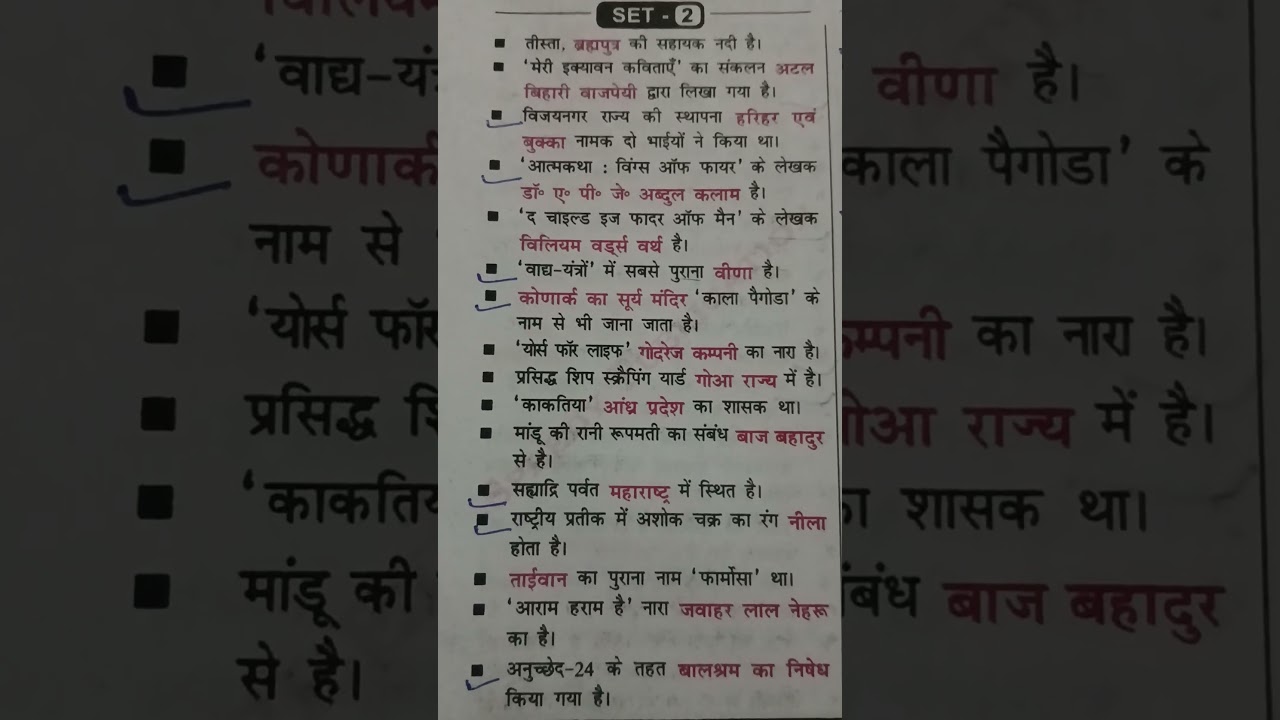 SET - 2
तीस्ता, ब्रह्मपुत्र की सहायक नदी है।
‘मेरी इक्यावन कविताएँ’ का संकलन अटल
बिहारी वाजपेयी द्वारा लिखा गया है।
विजयनगर राज्य की स्थापना हरिहर एवं
बुक्का नामक दो भाईयों ने किया था।
‘आत्मकथा : विंग्स ऑफ फायर’ के लेखक
डॉ॰ ए॰ पी॰ जे॰ अब्दुल कलाम है।
‘द चाइल्ड इज फादर ऑफ मैन’ के लेखक
विलियम वर्ड्स वर्थ है।
‘वाद्य-यंत्रों’ में सबसे पुराना वीणा है।
कोणार्क का सूर्य मंदिर ‘काला पैगोडा’ के
नाम से भी जाना जाता है।
‘योर्स फॉर लाइफ’ गोदरेज कम्पनी का नारा है।
प्रसिद्ध शिप स्क्रैपिंग यार्ड गोआ राज्य में है।
‘काकतिया’ आंध्र प्रदेश का शासक था।
मांडू की रानी रूपमती का संबंध बाज बहादुर
से है।
सह्याद्रि पर्वत महाराष्ट्र में स्थित है।
राष्ट्रीय प्रतीक में अशोक चक्र का रंग नीला
होता है।
ताईवान का पुराना नाम ‘फार्मोसा’ था।
‘आराम हराम है’ नारा जवाहर लाल नेहरू
का है।
अनुच्छेद-24 के तहत बालश्रम का निषेध
किया गया है।